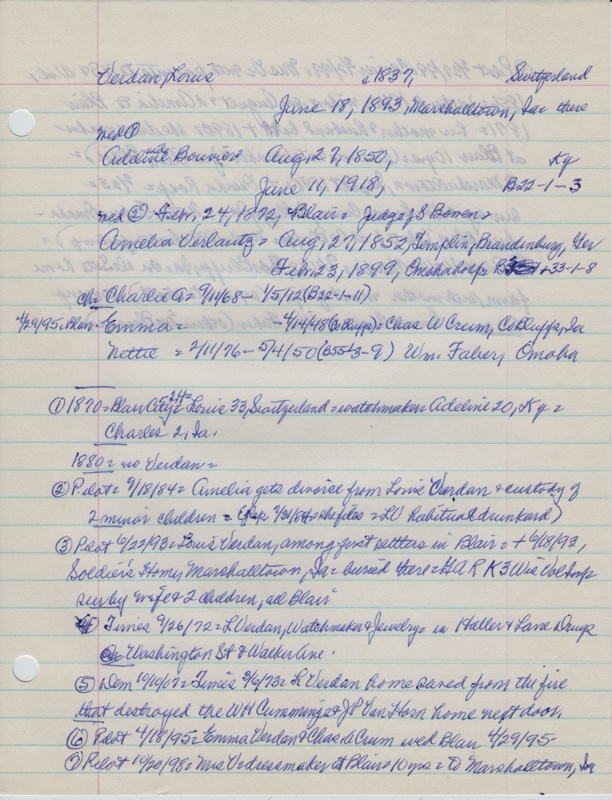 Verdan, Louis c1837, Switzerland
June 18, 1893, Marshalltown, Ia there
med ①
Adeline Bouvier Aug, 27, 1850, Ky
June 11, 1918, B22-1-3
med ② Feb, 24, 1872, Blair = Judge J S Bowen =
Amelia Verlautz = Aug, 27, 1852, Templin, Brandenburg, Ger
Feb, 23, 1899, Omaha hosp +33-1-8
ch: Charlie A = 9/11/68 - 1/5/12 (B22-1-11)
4/29/95. Blair. Emma = - 4/14/48 (Co Bluffs) = Chas W Crum, Co Bluffs, Ia
Nettie = 2/11/76 - 5/4/50 (B55-3-9) Wm. Faber, Omaha
① 1870 = Blair City = Louis 33, Switzerland = watchmaker Adeline 20, Ky =
Charles 2, Ia.
1880 = no Verdan =
② Pilot = 9/18/84 = Amelia gets divorce from Louis Verdan + custody of
2 minor children = 7/3/84 = she files = LV Habitual drunkard)
③ Pilot 6/22/93 = Louis Verdan, among first settlers in Blair = + 6/18/93,
Soldier's Home, Marshalltown, Ia = buried there = GAR K 3 Wis Vol
surby wife & 2 children, all Blair
④ Times 9/26/72 = L Verdan, Watchmaker & Jewelry = in Haller & Lane Drugs
Washington St & Walker Ave.
⑤ Dem = Times 3/6/73 = L Verdan home saved from the fire
that destroyed the WH Cummings & JP Van Horn home next door.
⑥ Pilot 4/18/95 = Emma Verdan & Chas Crum wed Blair 4/29/95
⑦ Pilot 10/20/98 = Mrs V dressmaker at Blair = 10 yrs = to Marshalltown, Ia